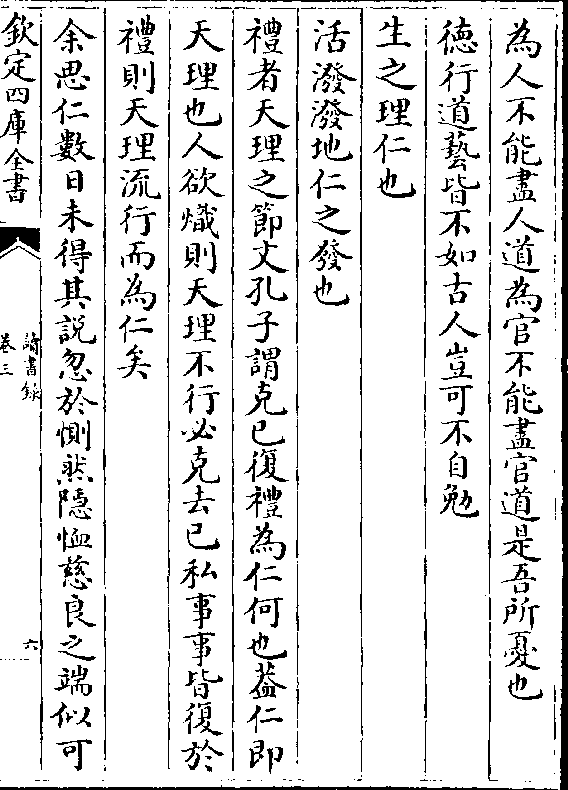 為人不能盡人道為官不能盡官道是吾所憂也
徳行道藝皆不如古人豈可不自勉
生之理仁也
活潑潑地仁之發也
禮者天理之節文孔子謂克已復禮為仁何也葢仁即
天理也人欲熾則天理不行必克去已私事事皆復於
禮則天理流行而為仁矣
余思仁數日未得其説忽於惻然隠恤慈良之端似可
欽定四庫全書
讀書録
卷三
六